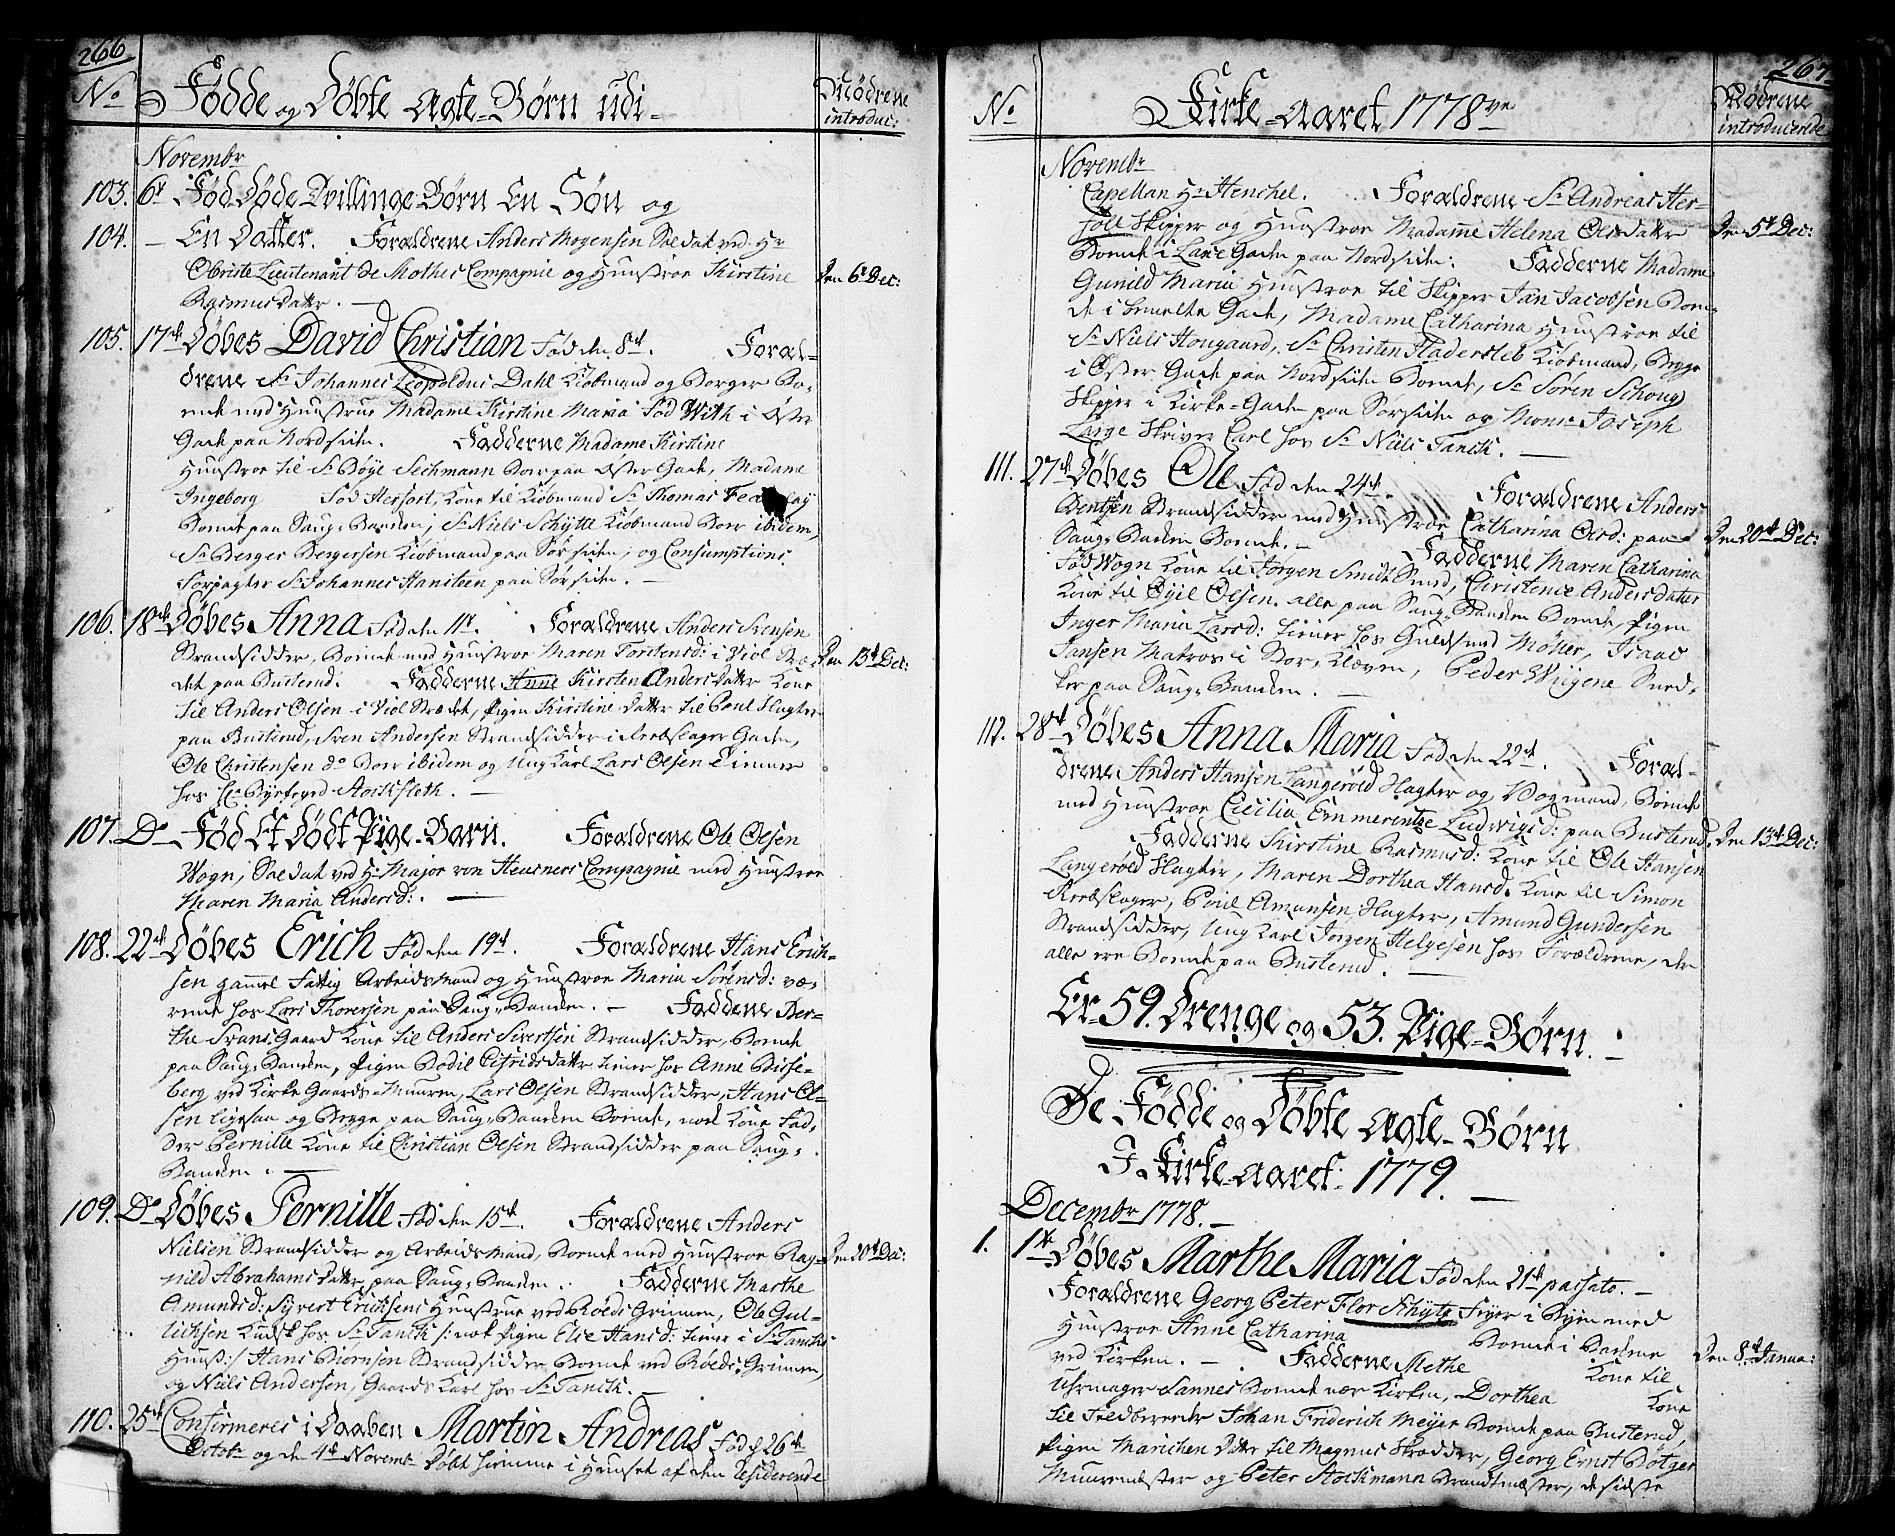 266
No
Fødde og Døbte Ægte-Børn udi-
Mødrene
introduc:
Novembr
103. 6t Fød Døde Tvillinge-Børn En Søn og
104. - En Datter. Forældrene Anders Mogensen Soldat ved Hr
Obriste Lieutenant de Mothes Compagnie og Hustroe Kirstine
Den 6t Dec:
Rasmusdattr. -
105. 17de Døbes David Christian Fød den 8d. Foræl-
drene Sr Johannes Leopoldus Dahl Kiøbmand og Borger Bo-
ende med Hustrue Madame Kirstine Maria Fød With i Øster
Gade paa Nordsiden. Fadderne Madame Kirstine
Hustroe til Sr Bøye Sechmann Boer paa Øster Gade, Madame
Ingeborg Fød Herfort, Kone til Kiøbmand Sr Thomas
Boende paa Saug-Banden; Sr Niels Schytte Kiøbmand Boer ibidem,
Sr Berger Bergersen Kiøbmand paa Sør-siden; og Consumptions
Forpagter Sr Johannes Hansteen paa Sørsiden. -
106. 18de Døbes Anna Fød den 11t. Forældrene Anders Svensen
Strandsidder, Boende med Hustroe Maren Torstensd: i Viol Stræ-
Den 13d Dec:
det paa Busterud. Fadderne Anne Kirsten Andersdattr Kone
til Anders Olsen i Viol Strædet, Pigen Kirstine Datter til Poul Slagter
paa Busterud, Sven Andersen Strandsidder i Reebslager Gaden,
Ole Christensen do Boer ibidem og Ung Karl Lars Olsen Tienner
hos Hr Byefoged Stockfleth. -
107. Do Fød Et Dødt Pige-Barn. Forældrene Ole Olsen
Wogn, Soldat ved Hr Major von Heusners Compagnie med Hustroe
Maren Maria Andersd:. -
108. 22de Døbes Erich Fød den 19d. Forældrene Hans Erich-
sen gammel Fattig Arbeidsmand og Hustroe Maria Sørensd: væ-
rende hos Lars Thoresen paa Saug-Banden. - Fadderne Ber-
the Svans Gaard Kone til Anders Sivertsen Strandsidder, Boende
paa Saug-Banden, Pigen Bodil Eistridsdattr tiener hos Anne Bisse-
berg ved Kirke Gaards-Muuren, Lars Olsen Strandsidder, Hans Ol-
sen ligesaa og Begge paa Saug-Banden Boende, nok Kone Fad-
der Pernille Kone til Christian Olsen Strandsidder paa Saug-
Banden. -
109. Do Døbes Pernille Fød den 15de. Forældrene Anders
Nielsen Strandsidder og Arbeidsmand, Boende med Hustroe Rag-
Den 20d Dec:
nild Abrahamsdattr, paa Saug-Banden. Fadderne Marthe
Amundsd: Syvert Erichsens Hustrue ved Røeds Grinnen, Ole Gul-
lichsen Kudsk hos Sr Tanck /: nok Pigen Else Hansd: tiener i Sr Tancks
Huus :/ Hans Biørnsen Strandsidder Boende ved Røeds Grinnen,
og Niels Andersen, Gaards Karl hos Sr Tanck. -
110. 25de Confirmeres i Daaben Martin Andreas Fød d 26de
Octobr og den 4de Novembr Døbt hiemme i Huuset af den Residerende
267
No
Kirke-Aaret 1778ve
Mødrene
introducerede
Novembr
Capellan Hr Henchel. Forældrene Sr Andreas Her-
föll Skipper og Hustroe Madame Helena Olesdatter
Den 5t Dec:
Boende i Lake Gaden paa Nordsiden. Fadderne Madame
Gunild Maria Hustroe til Skipper Jan Jacobsen Boen-
de i bemelte Gade, Madame Catharina Hustroe til
Sr Niels Hougaard, Sr Christen Hadersleb Kiøbmand, Begge
i Øster Gade paa Nordsiden Boende, Sr Sören Schoug
Skipper i Kirke-Gaden paa Sørsiden og Monsr Joseph
Lange Skriver Carl hos Sr Niels Tanck. -
111. 27de Døbes Ole Fød den 24de. Forældrene Anders
Bentsen Strandsidder med Hustroe Catharina Olesd: paa
Den 20de Dec:
Saug-Banden Boende. - Fadderne Maren Catharina
Fød Wogn Kone til Jörgen Smidt Smed, Christence Andersdatter
Kone til Eyil Olsen. alle paa Saug-Banden Boende, Pigen
Inger Maria Larsd: tiener hos Guldsmed Möller, Isaac
Jansen Matros i Bor-Kleven, Peder Wiigene Sned-
ker paa Saug-Banden. -
112. 28de Døbes Anna Maria Fød den 22de. Foræl-
drene Anders Hansen Langeröed Slagter og Vogmand, Boende
med Hustroe Cecilia Emmerentze Ludwigsd: paa Busterud.
Den 13de Dec:
Fadderne Kirstine Rasmusd: Kone til Ole Hansen
Langeröed Slagter, Maren Dorthea Hansd. Kone til Simon
Reebslager, Poul Amunsen Slagter, Amund Gundersen
Strandsidder, Ung Karl Jörgen Helgesen hos Forældrene, der
alle ere Boende paa Busterud. -
Er 59. Drenge og 53. Pige-Børn. -
De Fødde og Døbte Ægte-Børn
I Kirke-Aaret 1779. -
Decembr 1778. -
1. 1te Døbes Marthe Maria Fød den 21de passato. -
Forældrene Georg Peter Flor Schÿtz Feyer i Byen med
Hustroe Anne Catharina Boende i Badene
ved Kirken. - Fadderne Methe Kone til
Den 8de Janua:
Uhrmager Sannes Boende nær Kirken, Dorthea Kone
til Feldbereeder Johan Friderich Meyer Boende paa Busterud,
Pigen Marichen Datter til Magnus Skrædder, Georg Ernst Bötger
Muurmester og Peter Stockmann Brandtmester, de sidste